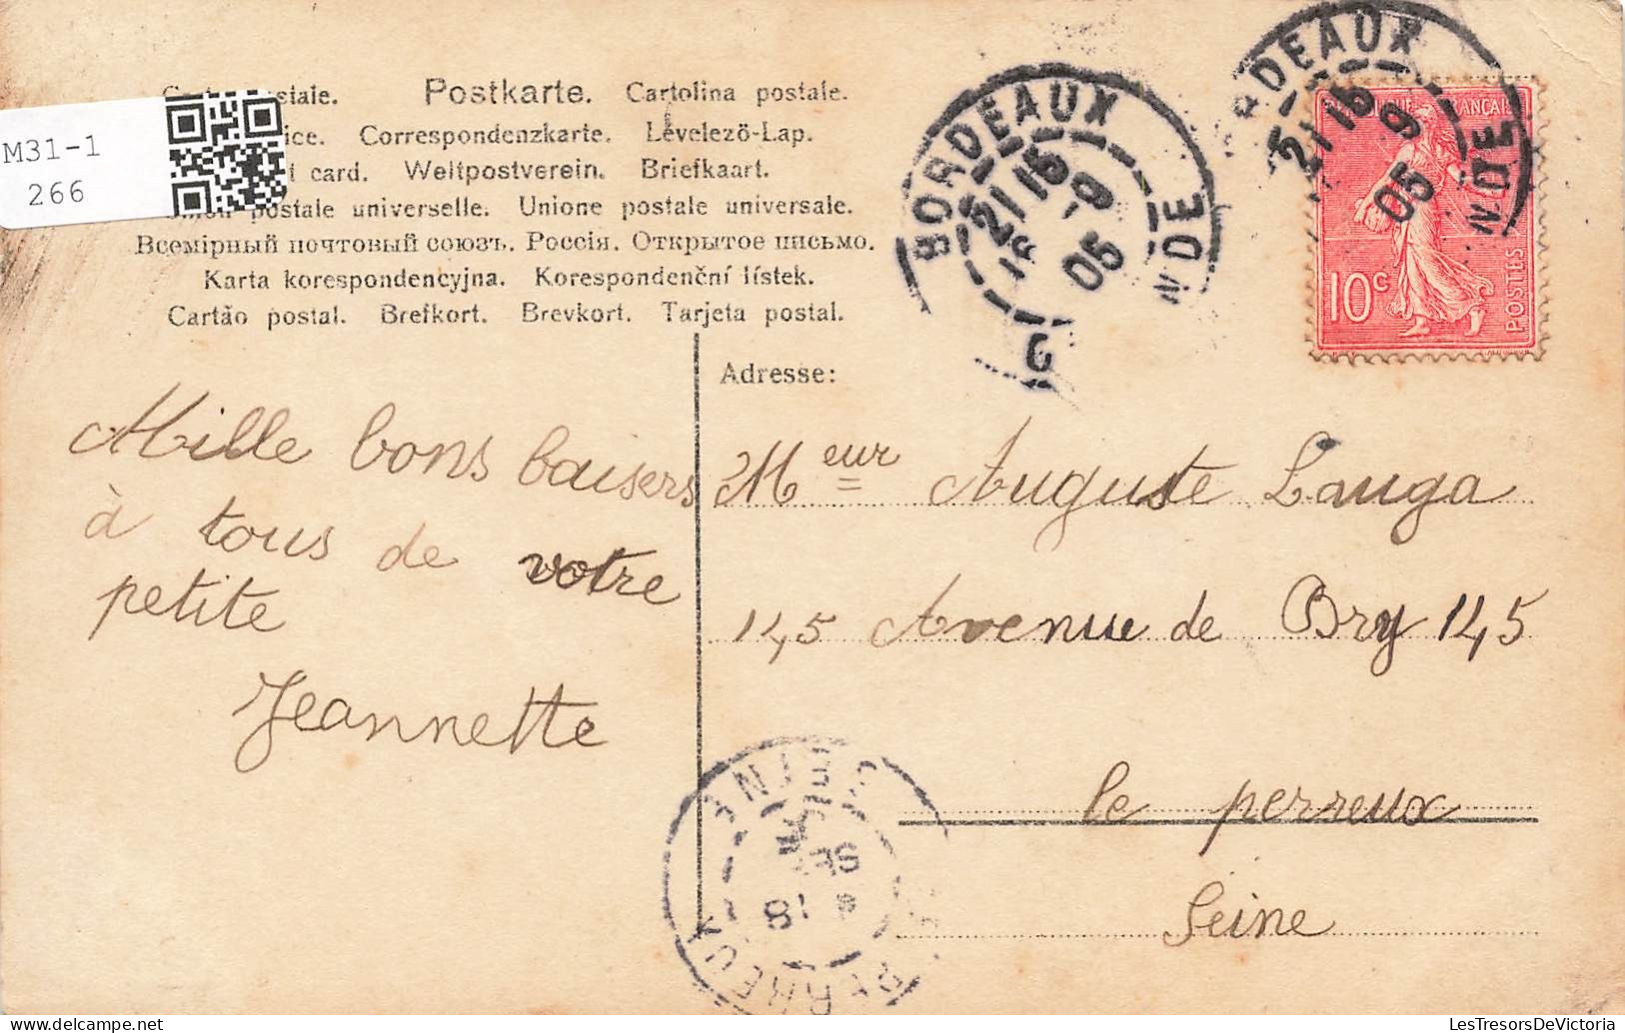 M31-1
266
postale. Postkarte. Cartolina postale.
Correspondenzkarte. Levelező-Lap.
card. Weltpostverein. Briefkaart.
postale universelle. Unione postale universale.
Всемірный почтовый союзъ. Россія. Открытое письмо.
Karta korespondencyjna. Korespondenční lístek.
Cartão postal. Brefkort. Brevkort. Tarjeta postal.
BORDEAUX
21 15
16 -9
05
BORDEAUX
21 15
9
05
FRANÇAISE
10c
POSTES
Mille bons baisers
à tous de votre
petite
Jeannette
Adresse:
Meur Auguste Lauga
145 Avenue de Bry 145
le perreux
Seine
PERREUX
18
SEINE
LesTresorsDeVictoria